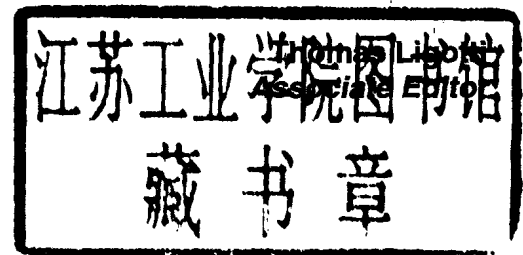 江苏工业学院图书馆
Thomas Ligotti
Associate Editor
藏书章